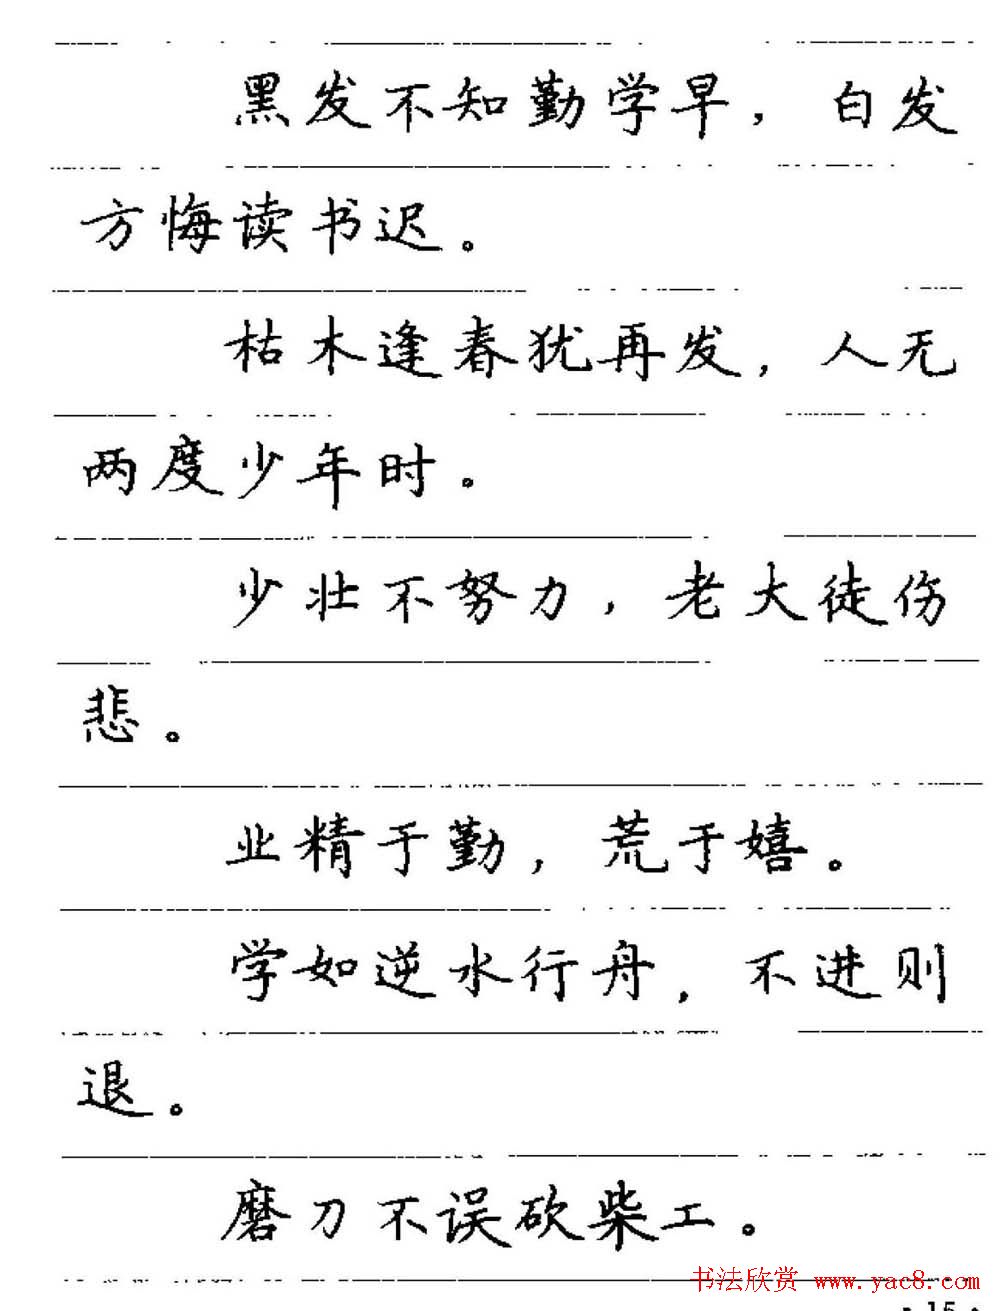 黑发不知勤学早，白发
方悔读书迟。
枯木逢春犹再发，人无
两度少年时。
少壮不努力，老大徒伤
悲。
业精于勤，荒于嬉。
学如逆水行舟，不进则
退。
磨刀不误砍柴工。
书法欣赏 www.yac8.com
• 15 •